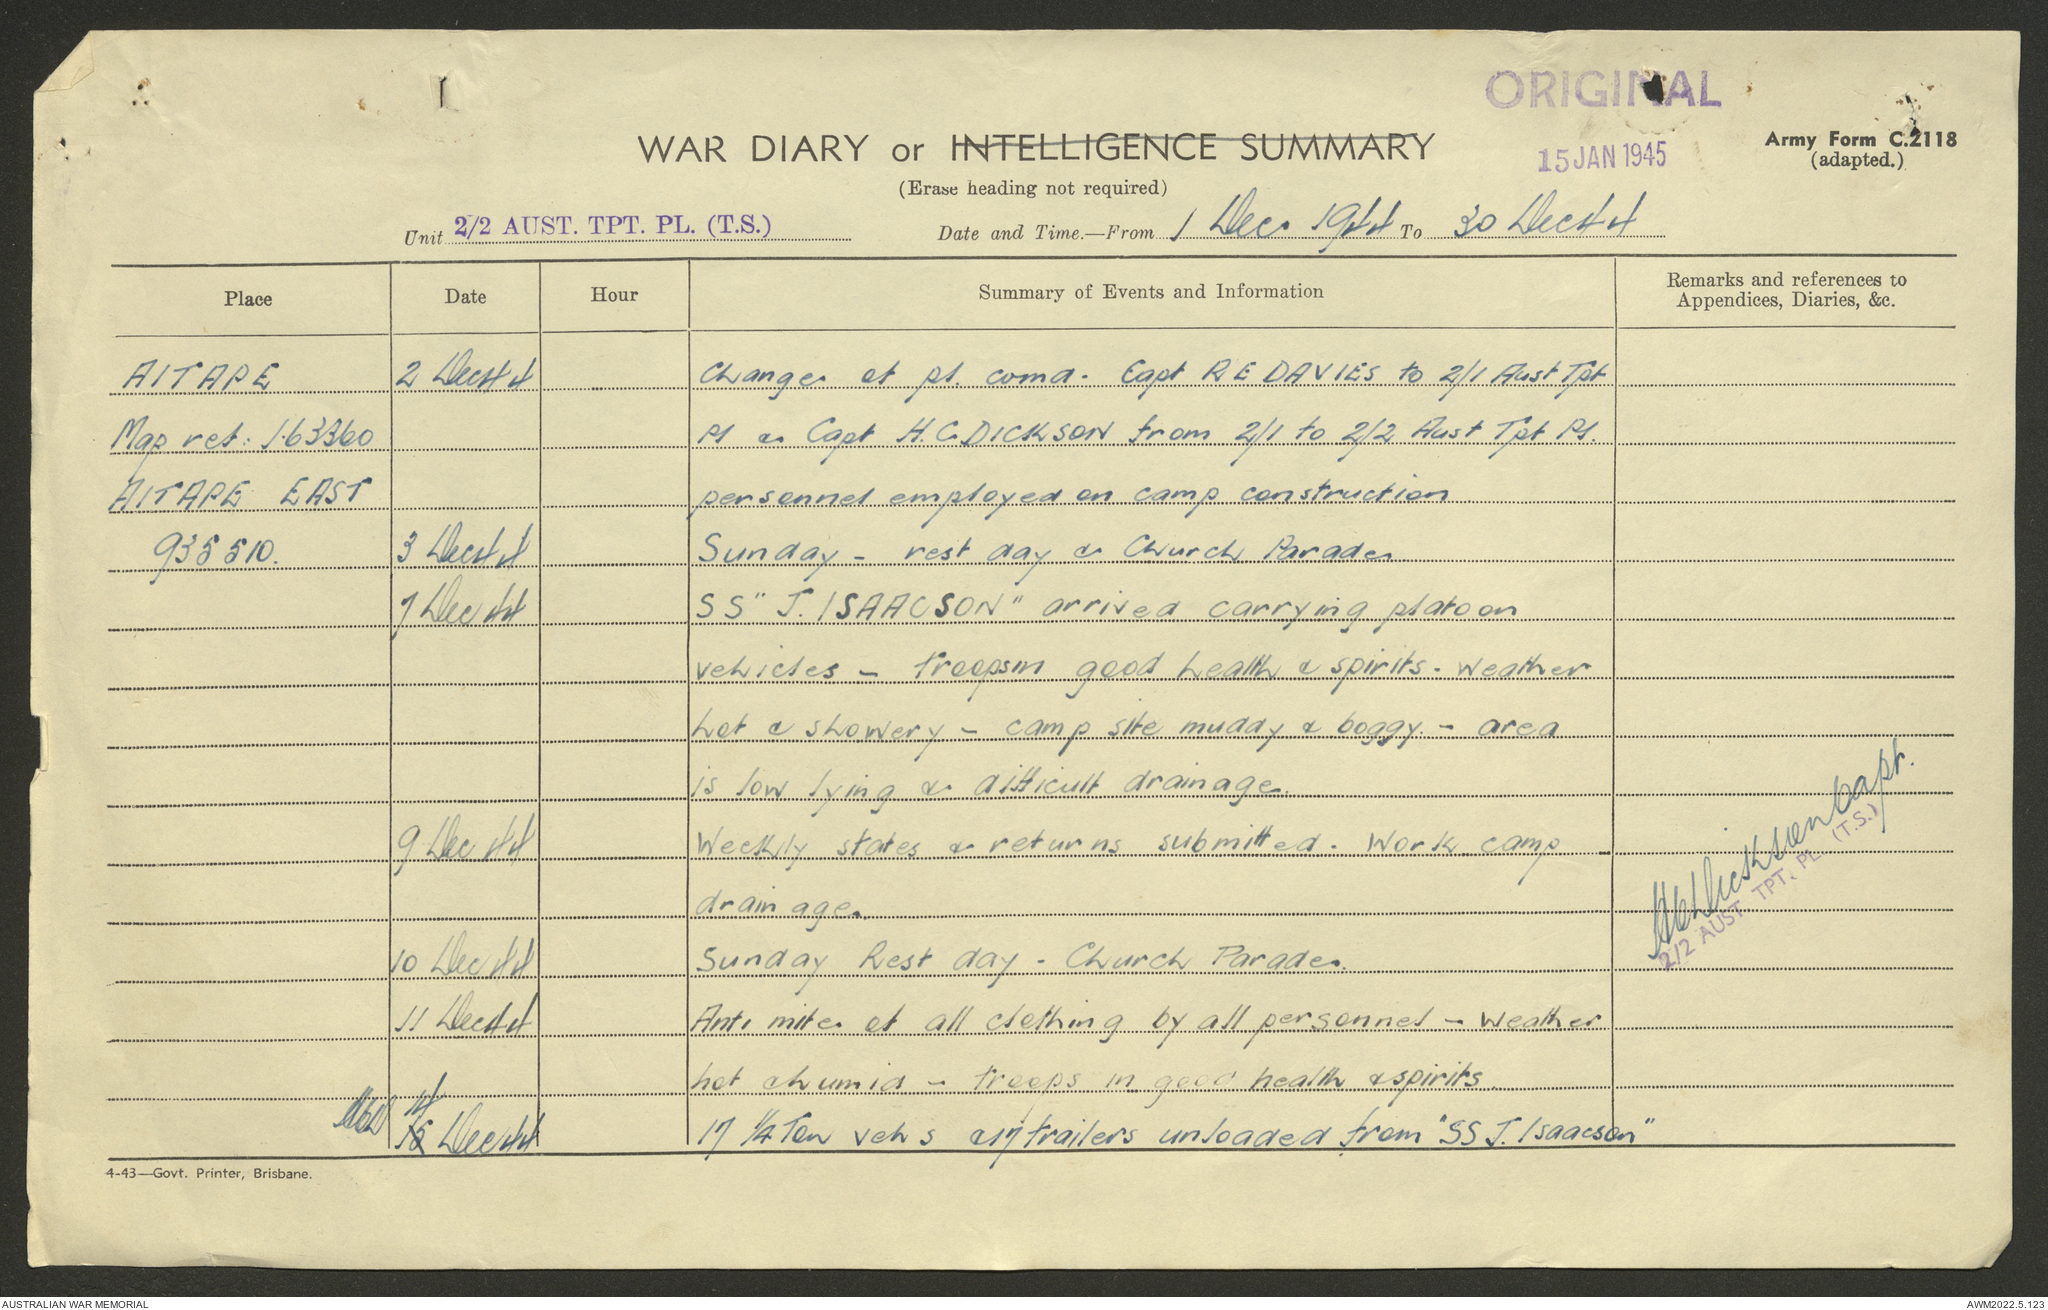 ORIGINAL
WAR DIARY or INTELLIGENCE SUMMARY
15 JAN 1945
Army Form C.2118
(adapted.)
(Erase heading not required)
Unit 2/2 AUST. TPT. PL. (T.S.)
Date and Time.—From 1 Dec. 1944 To 30 Dec 44
Place Date Hour Summary of Events and Information Remarks and references to
Appendices, Diaries, &c.
AITAPE 2 Dec 44 Change of pl. comd. Capt R E DAVIES to 2/1 Aust Tpt
Map ref: 163360 Pl & Capt H.C. DICKSON from 2/1 to 2/2 Aust Tpt Pl.
AITAPE EAST personnel employed on camp construction
935510. 3 Dec 44 Sunday - rest day & Church Parade.
7 Dec 44 SS "J. ISAACSON" arrived carrying platoon
vehicles - troops in good health & spirits - weather
hot & showery - camp site muddy & boggy - area
is low lying & difficult drainage.
9 Dec 44 Weekly states & returns submitted. Work camp
drainage.
10 Dec 44 Sunday Rest day - Church Parade.
11 Dec 44 Anti mite of all clothing by all personnel - weather
hot & humid - troops in good health & spirits.
HCD 14 15 Dec 44 17 1/4 Ton vehs & 17 trailers unloaded from "SS J. Isaacson"
HCDickson Capt.
2/2 AUST. TPT. PL. (T.S.)
4-43—Govt. Printer, Brisbane.
AUSTRALIAN WAR MEMORIAL
AWM2022.5.123